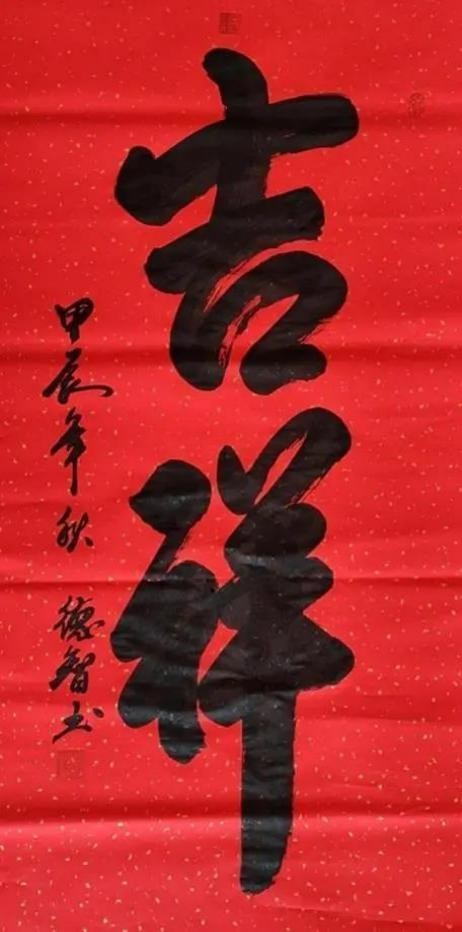 吉祥
甲辰年秋 德智书